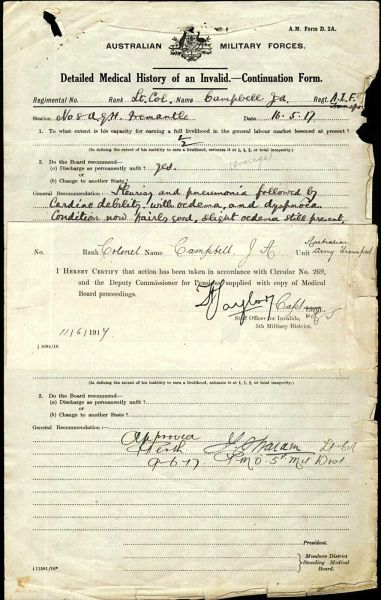 A.M. Form D. 2A.
AUSTRALIAN MILITARY FORCES.
Detailed Medical History of an Invalid.—Continuation Form.
Regimental No. Rank Lt. Col. Name Campbell J.A. Regt. A.I.F.
Station No 8 A.G.H. Fremantle. Date 16.5.17
1. To what extent is his capacity for earning a full livelihood in the general labour market lessened at present?
1/2
(In defining the extent of his inability to earn a livelihood, estimate it at ¼, ½, ¾, or total incapacity.)
2. Do the Board recommend—
(a) Discharge as permanently unfit? yes.
or
(b) Change to another State?
General Recommendation: Pleurisy and pneumonia followed by
Cardiac debility, with oedema, and dyspnoea
Condition now fairly good, slight oedema still present.
No. Rank Colonel Name Campbell, J A. Unit Australian
Army Transport
I HEREBY CERTIFY that action has been taken in accordance with Circular No. 269,
and the Deputy Commissioner for Pensions supplied with copy of Medical
Board proceedings.
Taylor Capt
Staff Officer for Invalids,
5th Military District.
J 1684/16
11/6/1917
(In defining the extent of his inability to earn a livelihood, estimate it at ¼, ½, ¾, or total incapacity.)
2. Do the Board recommend—
(a) Discharge as permanently unfit?
or
(b) Change to another State?
General Recommendation:
Approved
Perth Lt Col
9-6-17 P.M.O. 5th Mil Dist
President.
Members District
Standing Medical
Board.